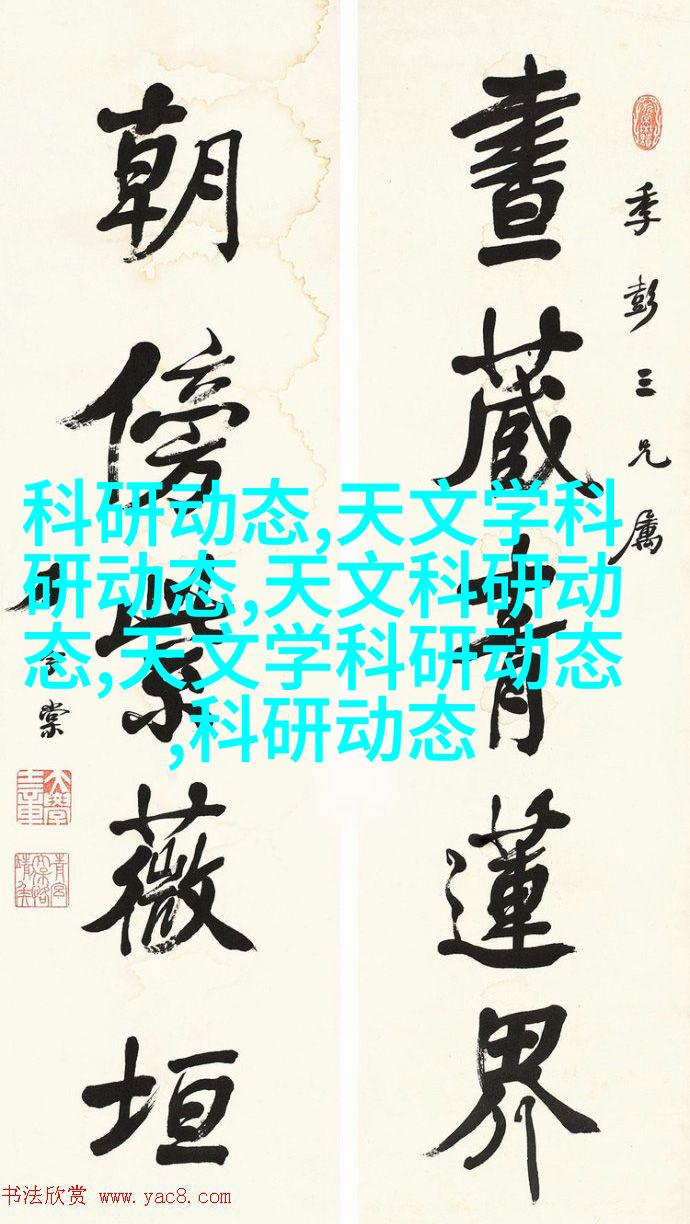 晝藏青蓮界
季彭三兄屬
朝傍紫薇垣
棠
科研动态,天文学科
研动态,天文科研动
态,天文学科研动态
,科研动态
书法欣赏 www.yac8.com